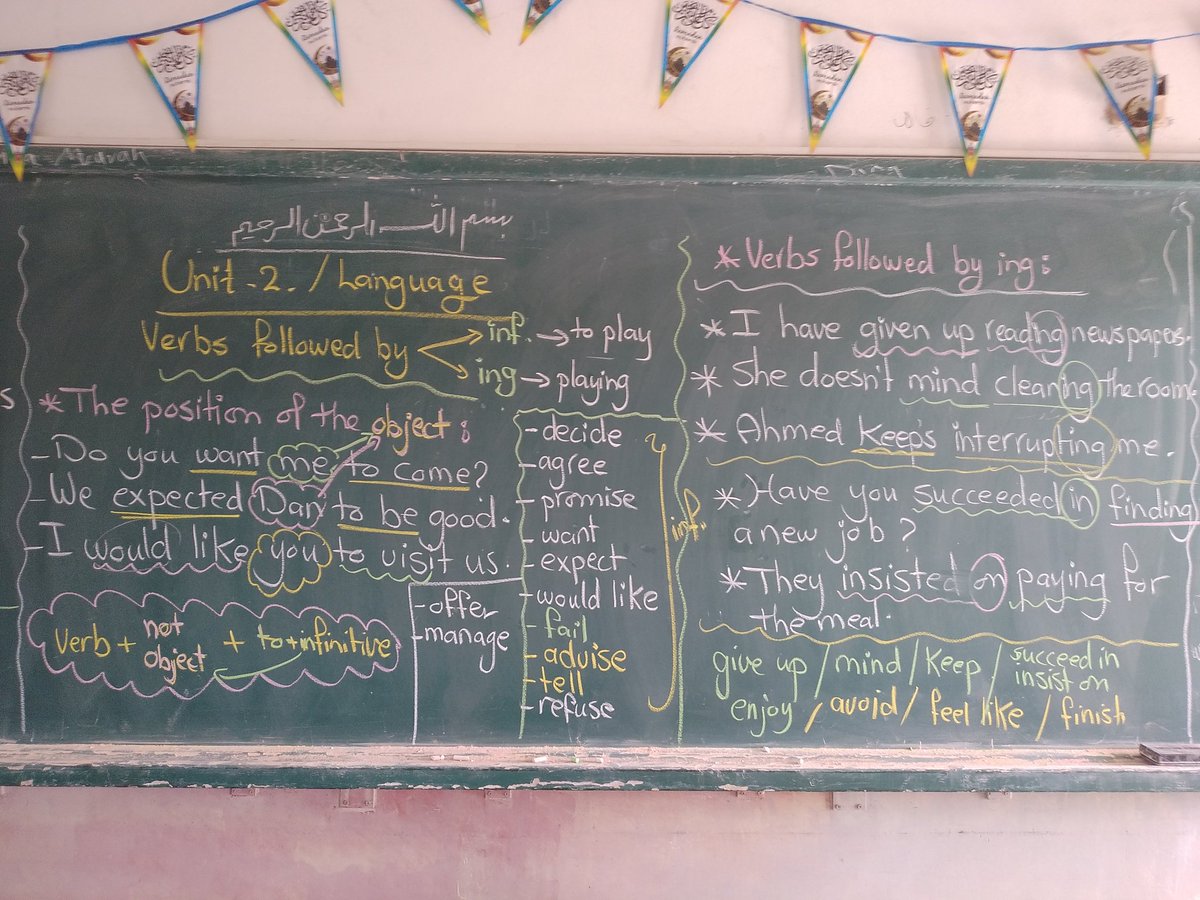 بسم اللـــه الرحمن الرحيم
Unit-2. / Language
Verbs followed by
inf. → to play
ing → playing
*The position of the object:
-Do you want me to come?
-We expected Dan to be good.
-I would like you to visit us.
verb + not object + to + infinitive
-offer
-manage
-decide
-agree
-promise
-want
-expect
-would like
-fail
-advise
-tell
-refuse
inf.
*Verbs followed by ing:
*I have given up reading newspapers.
*She doesn't mind cleaning the room
*Ahmed Keeps interrupting me.
*Have you succeeded in finding
a new job?
*They insisted on paying for
the meal.
give up / mind / Keep / succeed in
insist on
enjoy / avoid / feel like / finish